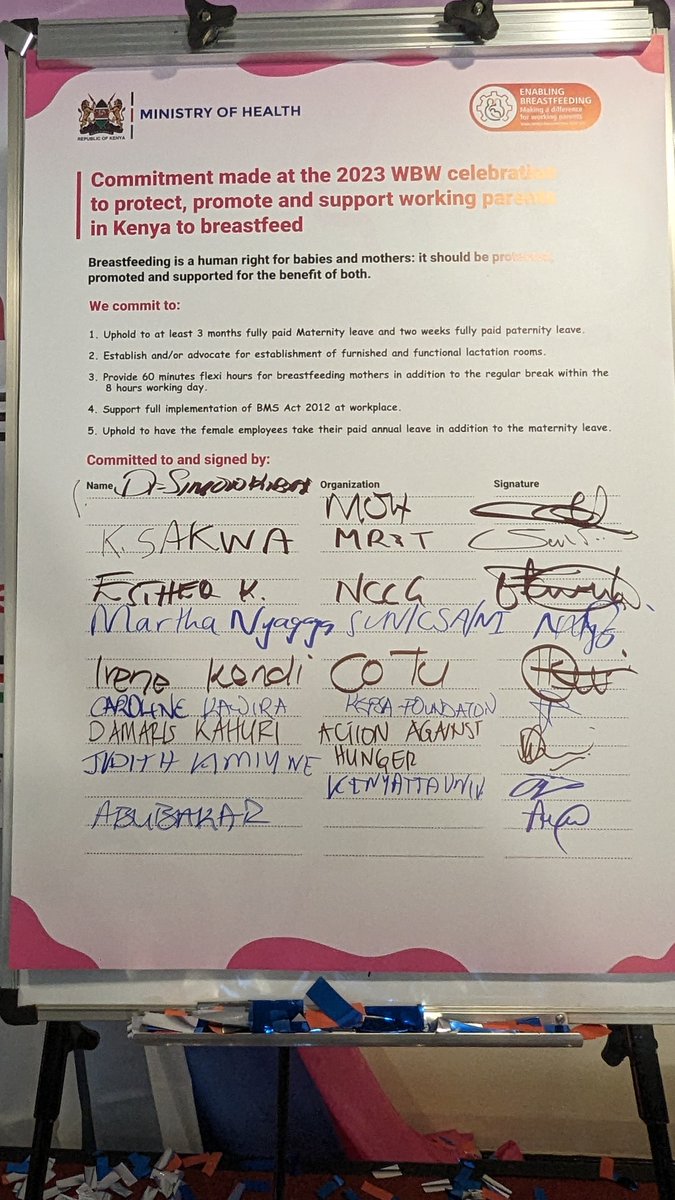 REPUBLIC OF KENYA
MINISTRY OF HEALTH
ENABLING
BREASTFEEDING
Making a difference
for working parents
Commitment made at the 2023 WBW celebration
to protect, promote and support working parents
in Kenya to breastfeed
Breastfeeding is a human right for babies and mothers: it should be protected,
promoted and supported for the benefit of both.
We commit to:
1. Uphold to at least 3 months fully paid Maternity leave and two weeks fully paid paternity leave.
2. Establish and/or advocate for establishment of furnished and functional lactation rooms.
3. Provide 60 minutes flexi hours for breastfeeding mothers in addition to the regular break within the
8 hours working day.
4. Support full implementation of BMS Act 2012 at workplace.
5. Uphold to have the female employees take their paid annual leave in addition to the maternity leave.
Committed to and signed by:
Name Organization Signature
MOH
K. SAKWA
ESTHER K. NCCG
Martha Nyagga SUN/CSA/NI
Irene Kendi COTU
CAROLINE KAWIRA FOUNDATION
DAMARIS KAHURI ACTION AGAINST
HUNGER
JUDITH
KENYATTA UNIV
ABUBAKAR